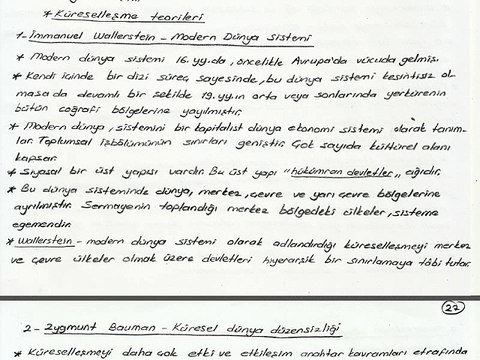 * Küreselleşme teorileri
1- İmmanuel Wallerstein - Modern Dünya Sistemi
* Modern dünya sistemi 16. yy.da, öncelikle Avrupa'da vücuda gelmiş.
* Kendi içinde bir dizi süreç sayesinde, bu dünya sistemi kesintisiz ol-
masa da devamlı bir şekilde 19. yy.ın orta veya sonlarında yerkürenin
bütün coğrafi bölgelerine yayılmıştır.
* Modern dünya, sistemini bir kapitalist dünya ekonomi sistemi olarak tanım-
lar. Toplumsal işbölümünün sınırları geniştir. Çok sayıda kültürel alanı
kapsar.
* Siyasal bir üst yapısı vardır. Bu üst yapı "hükümran devletler" ağıdır.
* Bu dünya sisteminde dünya, merkez, çevre ve yarı çevre bölgelerine
ayrılmıştır. Sermayenin toplandığı merkez bölgedeki ülkeler, sisteme
egemendir.
* Wallerstein - modern dünya sistemi olarak adlandırdığı küreselleşmeyi merkez
ve çevre ülkeler olmak üzere devletleri hiyerarşik bir sınırlamaya tâbi tutar.
22
2- Zygmunt Bauman - Küresel dünya düzensizliği
* Küreselleşmeyi daha çok etki ve etkileşim anahtar kavramları etrafında